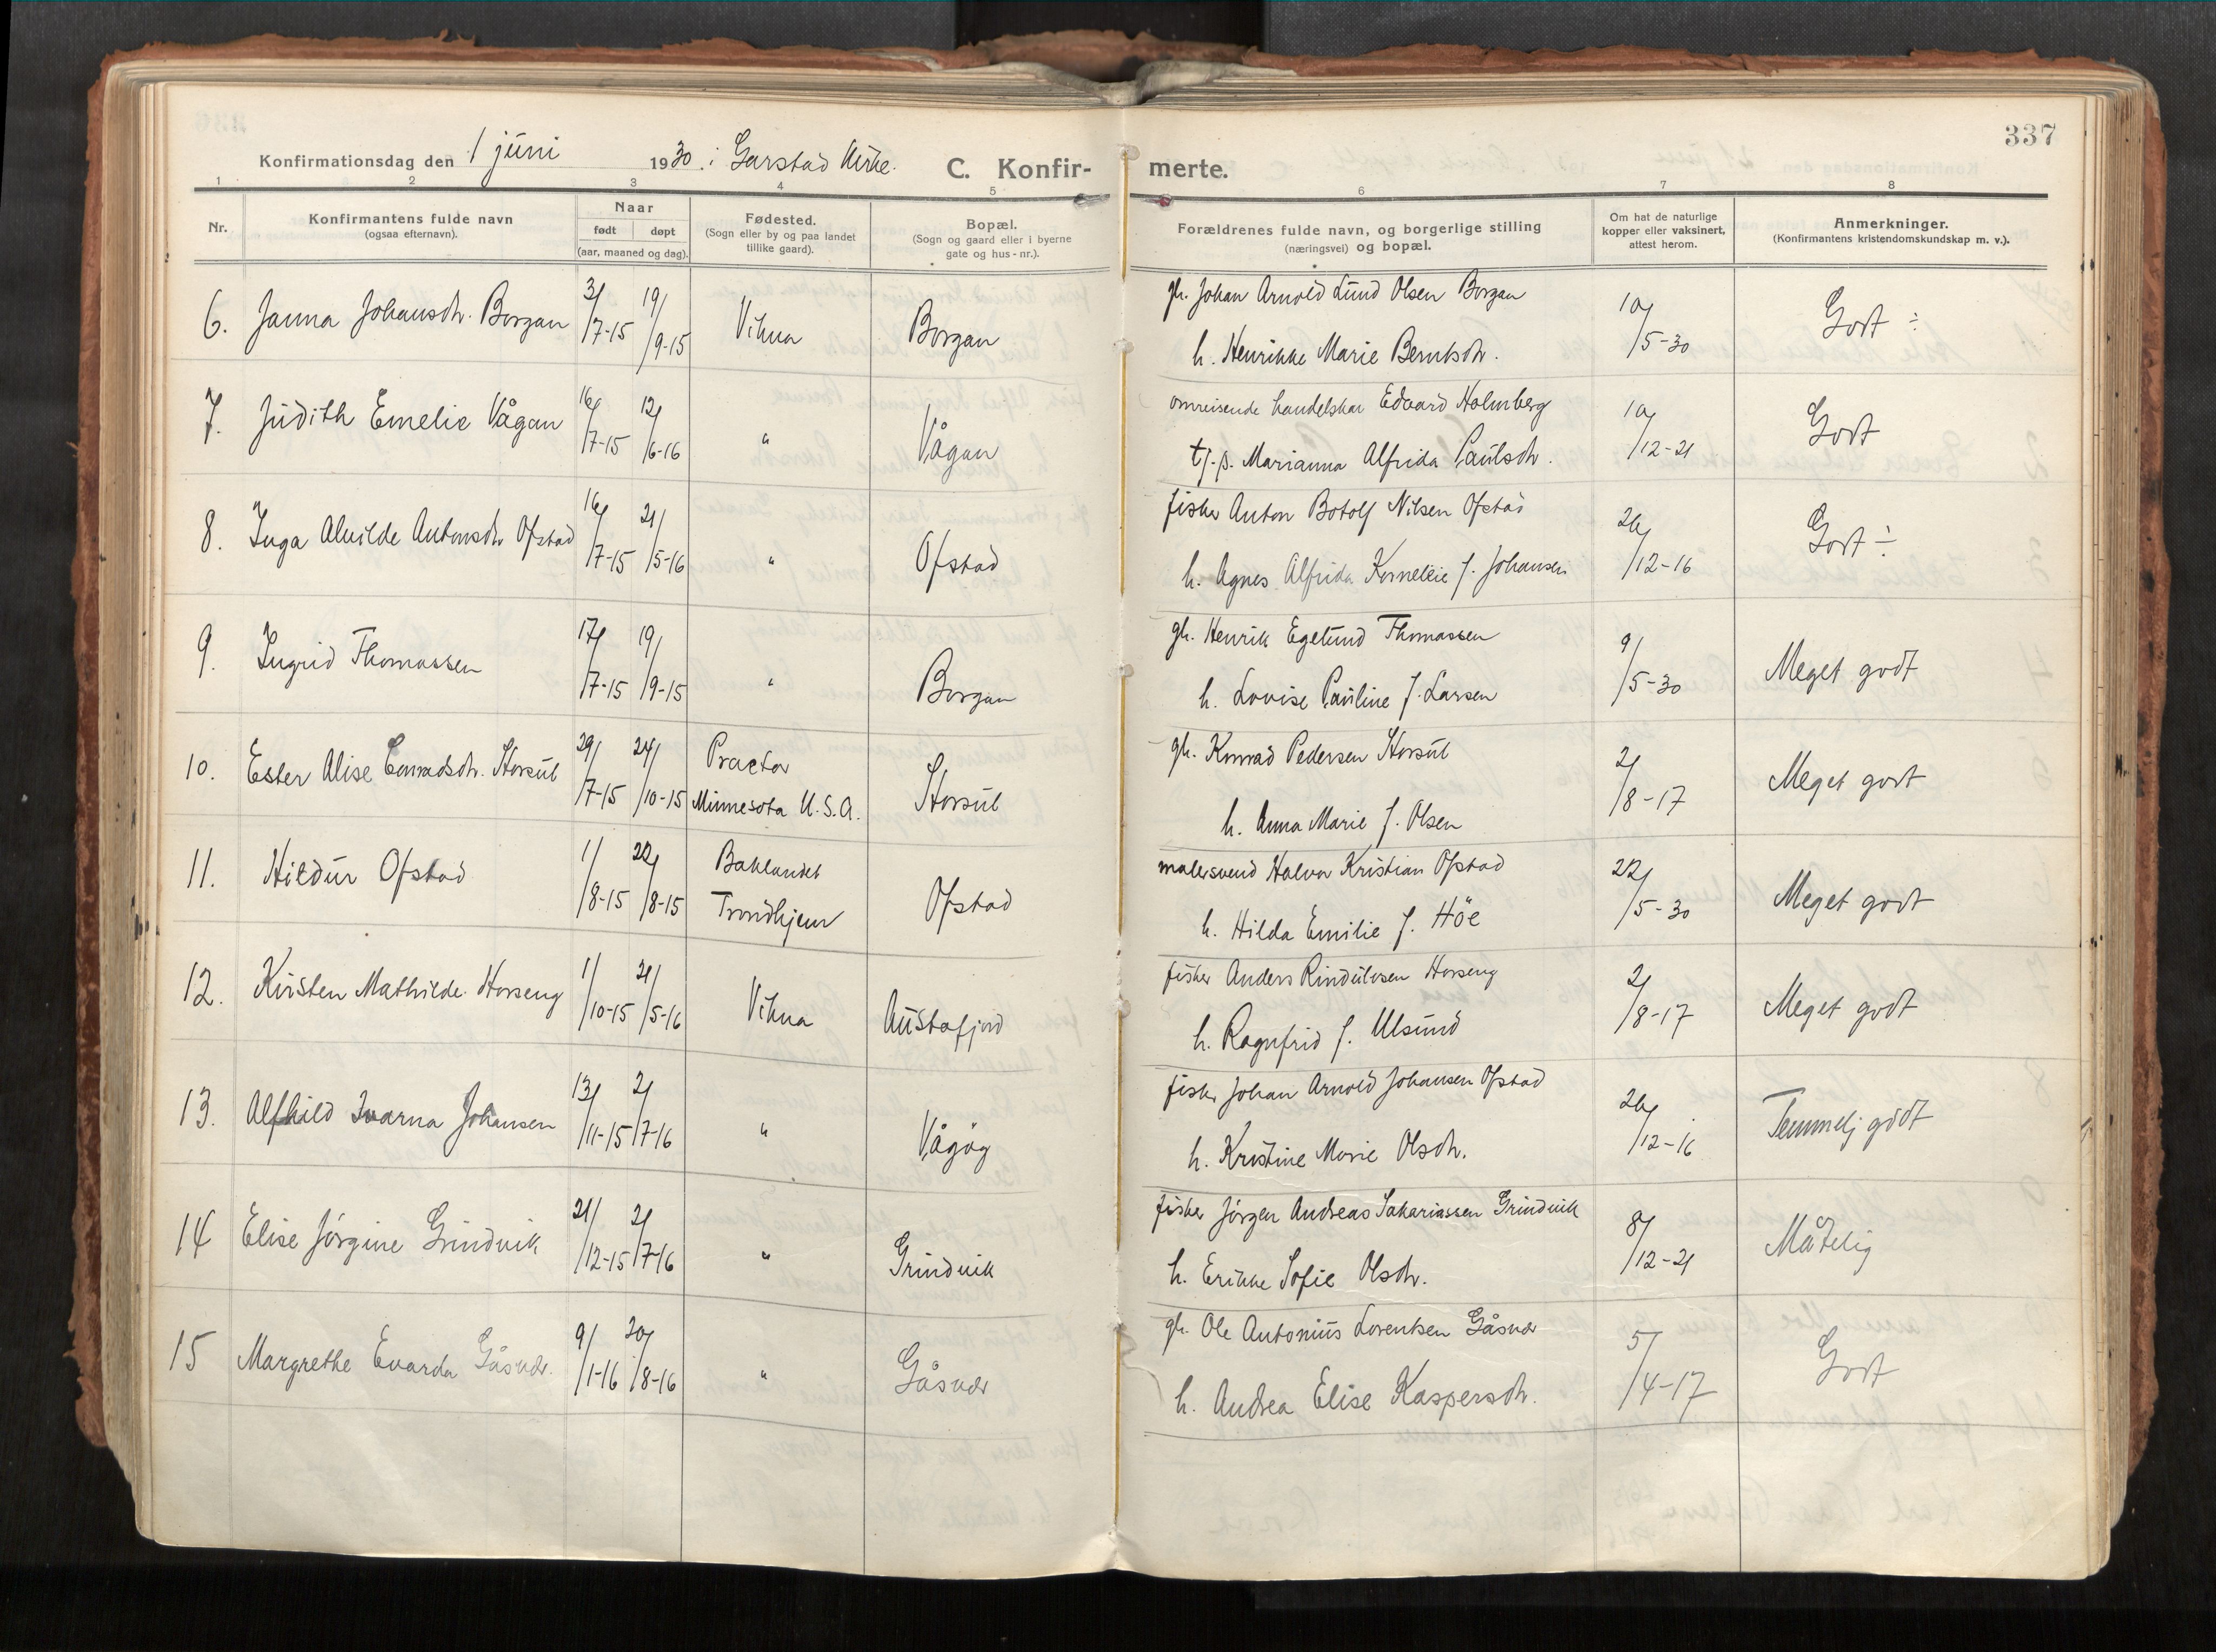 337
Konfirmationsdag den 1 juni 1930 i Garstad kirke. C. Konfirmerte.
1 2 3 4 5 6 7 8
Nr.
Konfirmantens fulde navn
(ogsaa efternavn).
Naar
født døpt
(aar, maaned og dag).
Fødested.
(Sogn eller by og paa landet
tillike gaard).
Bopæl.
(Sogn og gaard eller i byerne
gate og hus-nr.).
Forældrenes fulde navn, og borgerlige stilling
(næringsvei) og bopæl.
Om hat de naturlige
kopper eller vaksinert,
attest herom.
Anmerkninger.
(Konfirmantens kristendomskundskap m. v.).
6. Janna Johansdtr. Borgan 3/7-15 19/9-15 Vikna Borgan
gb. Johan Arnold Lund Olsen Borgan
h. Henrikke Marie Berntsdtr.
10/5-30 Godt ÷
7. Judith Emelie Vågan 16/7-15 12/6-16 " Vågan
omreisende handelskar Edvard Holmberg
tj.p. Marianna Alfrida Paulsdtr.
10/12-21 Godt
8. Inga Alvilde Antonsdtr. Ofstad 16/7-15 21/5-16 " Ofstad
fisker Anton Botolf Nilsen Ofstad
h. Agnes Alfrida Kornelie f. Johansen
26/12-16 Godt ÷
9. Ingrid Thomassen 17/7-15 19/9-15 " Borgan
gb. Henrik Egelund Thomassen
h. Lovise Pauline f. Larsen
9/5-30 Meget godt
10. Ester Alise Conradsdtr. Storsul 29/7-15 24/10-15 Practor
Minnesota U.S.A. Storsul
gb. Konrad Pedersen Storsul
h. Anna Marie f. Olsen
2/8-17 Meget godt
11. Hildur Ofstad 1/8-15 22/8-15 Baklandet
Trondhjem Ofstad
malersvend Halvor Kristian Ofstad
h. Hilda Emilie f. Höe
22/5-30 Meget godt
12. Kirsten Mathilde Horseng 1/10-15 21/5-16 Vikna Austafjord
fisker Anders Rindulvsen Horseng
h. Ragnfrid f. Ulsund
2/8-17 Meget godt
13. Alfhild Ivarna Johansen 13/11-15 2/7-16 " Vågög
fisker Johan Arnold Johansen Ofstad
h. Kristine Marie Olsdtr.
26/12-16 Temmelj godt
14 Elise Jørgine Grindvik 21/12-15 2/7-16 " Grindvik
fisker Jörgen Andreas Sakariassen Grindvik
h. Erikke Sofie Olsdtr.
8/12-21 Måtelig
15 Margrethe Evarda Gåsvær. 9/1-16 20/8-16 " Gåsvær
gb. Ole Antonius Lorentsen Gåsvær
h. Andrea Elise Kaspersdtr.
5/4-17 Godt